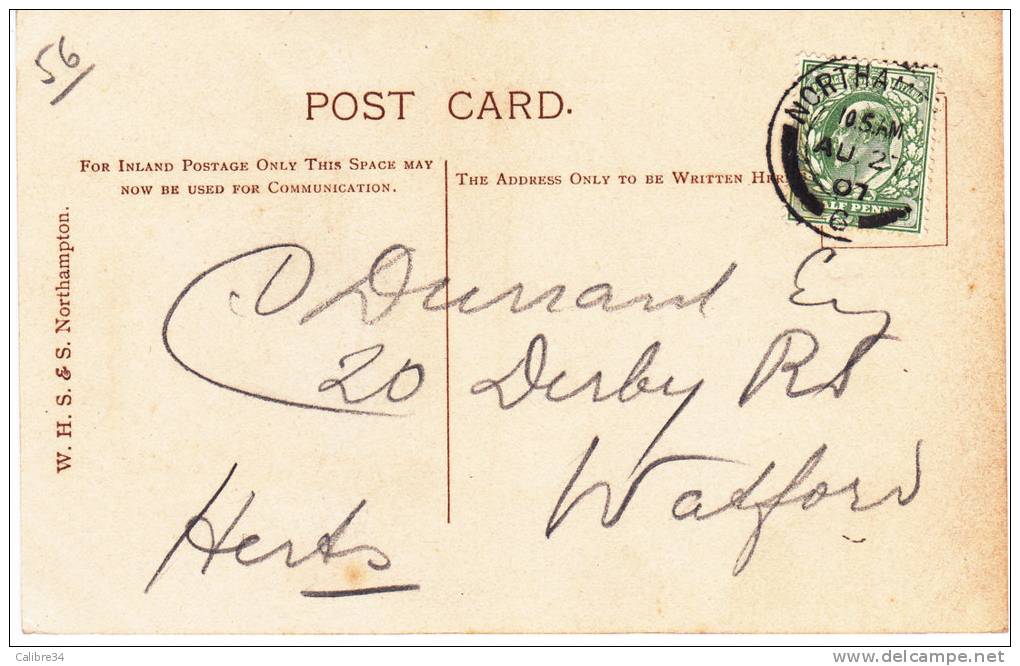 56/
POST CARD.
FOR INLAND POSTAGE ONLY THIS SPACE MAY
NOW BE USED FOR COMMUNICATION.
THE ADDRESS ONLY TO BE WRITTEN HERE
W. H. S. & S. Northampton.
NORTHAM
10.5 AM
AU 27
07
HALF PENNY
Durrant Esq
20 Derby Rd
Watford
Herts
Calibre34
www.delcampe.net